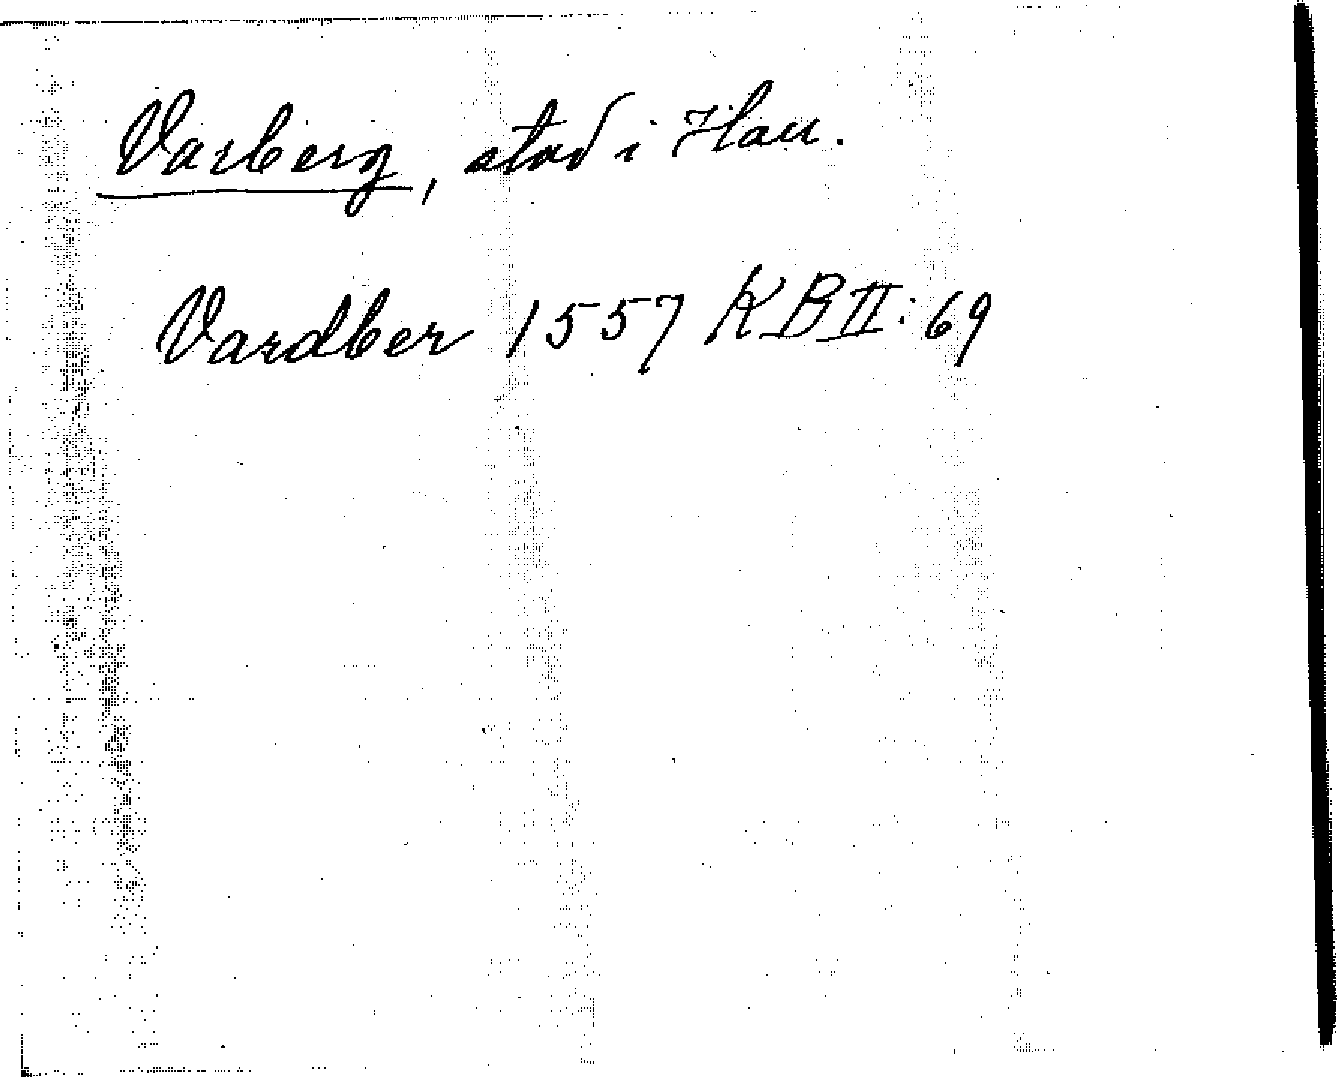 Varberg, stad i Hall.
Vardber 1557 KB II: 69